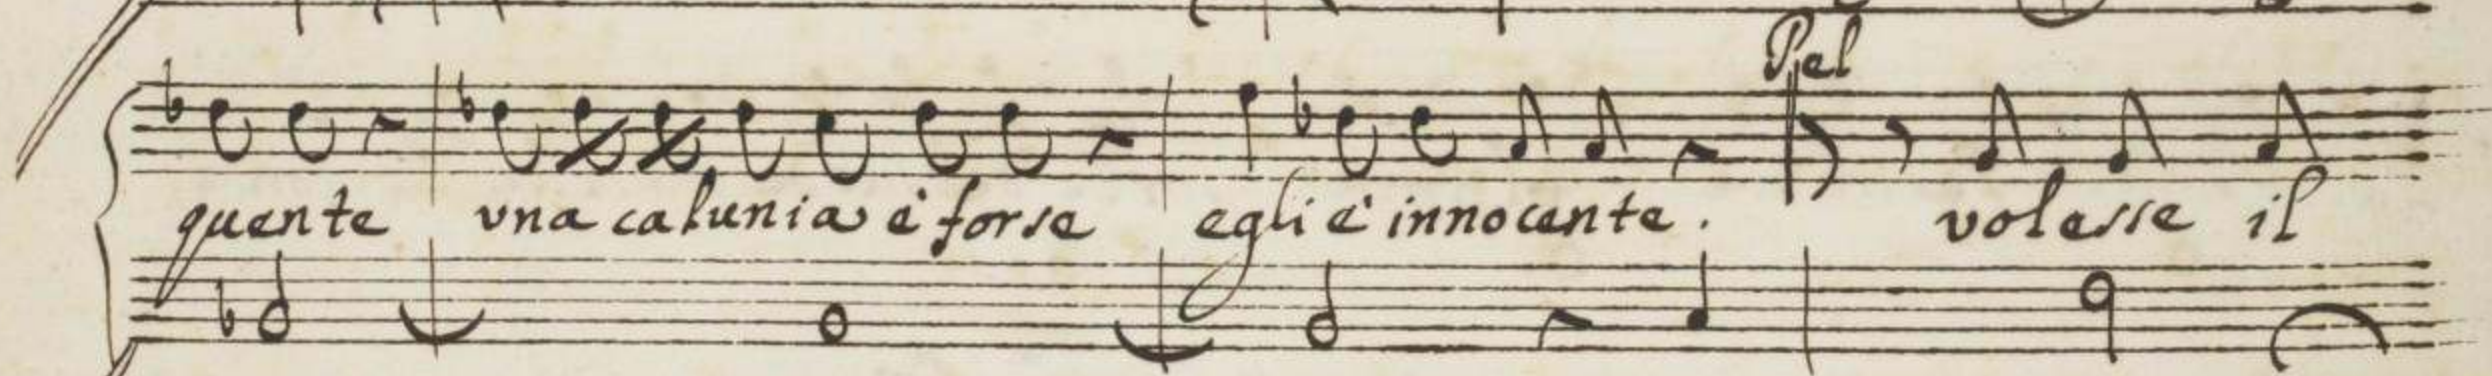 Pel
quente vna calunia è forse egli è innocente. volesse il